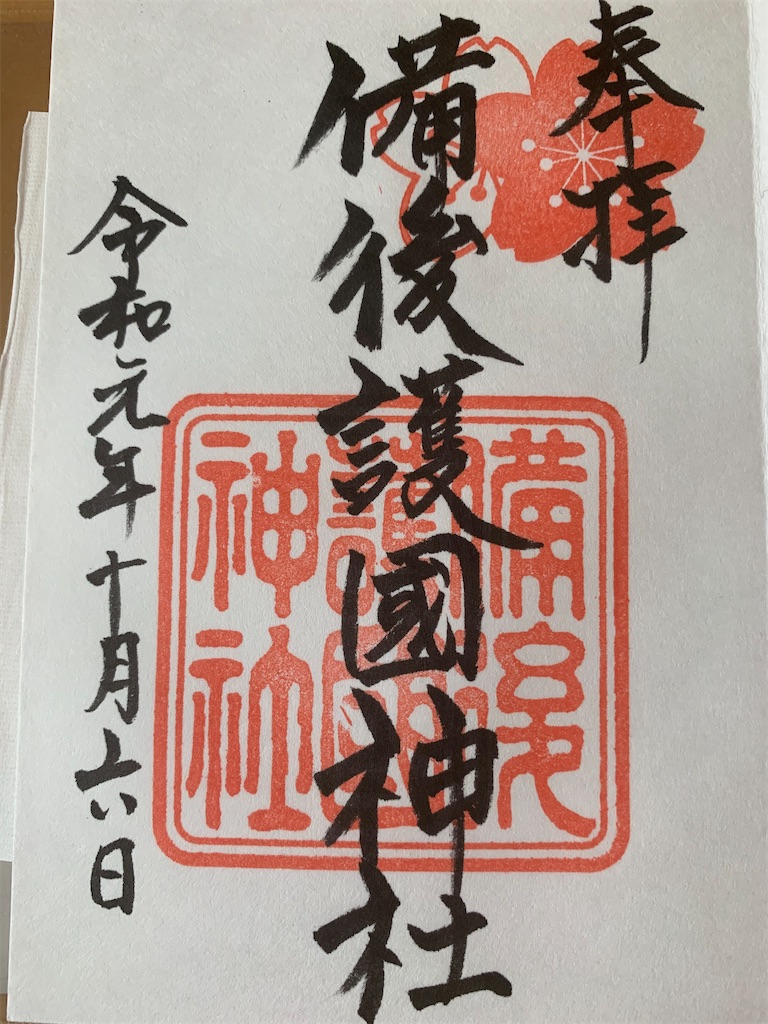 奉拝
備後護國神社
備後
護国
神社
令和元年十月六日